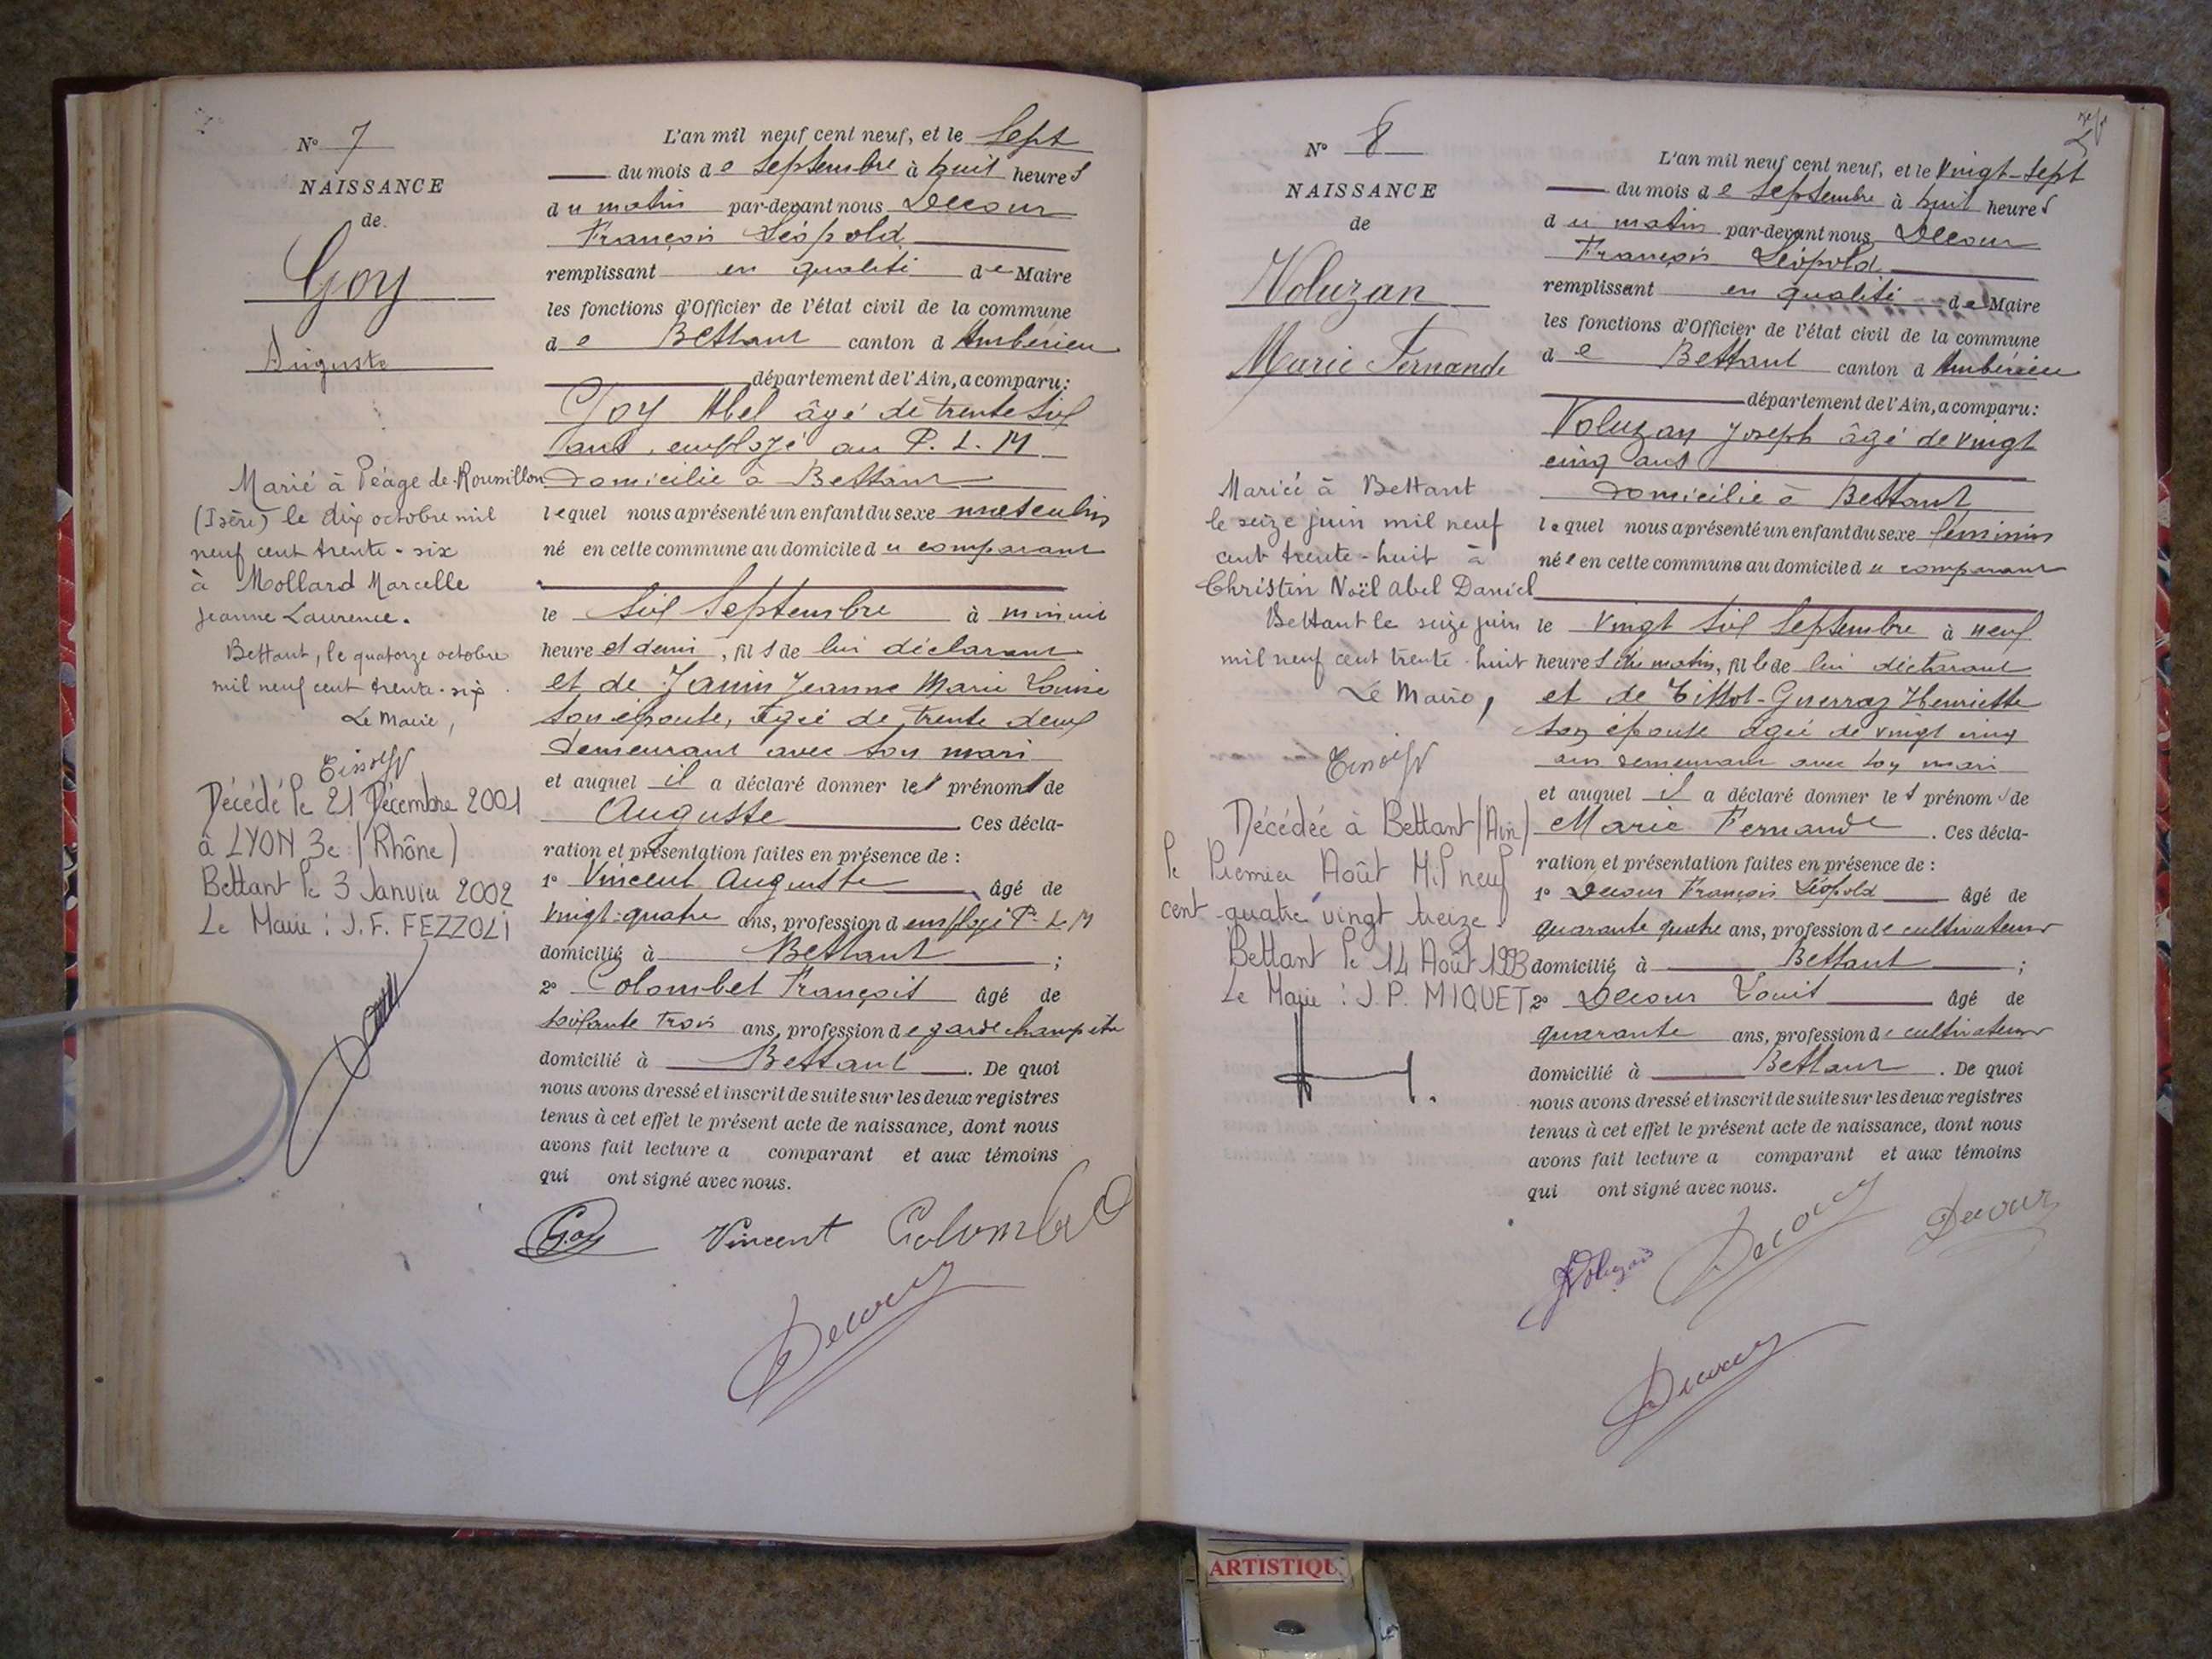 N° 7
NAISSANCE
de
Goy
Auguste
Marié à Péage-de-Roussillon
(Isère) le dix octobre mil
neuf cent trente-six
à Mollard Marcelle
Jeanne Laurence.
Bettant, le quatorze octobre
mil neuf cent trente-six.
Le Maire,
Décédé le 21 Décembre 2001
à LYON 3e (Rhône)
Bettant le 3 Janvier 2002
Le Maire : J. F. FEZZOLI
L'an mil neuf cent neuf, et le Sept
du mois de Septembre à huit heures
du matin par-devant nous Decour
François Léopold
remplissant en qualité de Maire
les fonctions d'Officier de l'état civil de la commune
de Bettant canton d'Ambérieu
département de l'Ain, a comparu:
Goy Abel âgé de trente six
ans, employé au P. L. M
domicilié à Bettant
lequel nous a présenté un enfant du sexe masculin
né en cette commune au domicile du comparant
le six Septembre à minuit
heure et demi, fils de lui déclarant
et de Janin Jeanne Marie Louise
son épouse, âgée de trente deux
demeurant avec son mari
et auquel il a déclaré donner les prénoms de
Auguste . Ces décla-
ration et présentation faites en présence de :
1° Vincent Auguste, âgé de
vingt-quatre ans, profession d employé P. L. M
domicilié à Bettant ;
2° Colombet François âgé de
soixante trois ans, profession de garde champêtre
domicilié à Bettant . De quoi
nous avons dressé et inscrit de suite sur les deux registres
tenus à cet effet le présent acte de naissance, dont nous
avons fait lecture a comparant et aux témoins
qui ont signé avec nous.
Goy Vincent Colombet
Decour
N° 8
NAISSANCE
de
Voluzan
Marie Fernande
Mariée à Bettant
le seize juin mil neuf
cent trente-huit à
Christin Noël Abel Daniel
Bettant le seize juin
mil neuf cent trente-huit
Le Maire,
Décédée à Bettant (Ain)
le Premier Août Mil neuf
cent-quatre vingt treize.
Bettant le 14 Août 1993
Le Maire : J. P. MIQUET
L'an mil neuf cent neuf, et le vingt-sept
du mois de Septembre à huit heures
du matin par-devant nous Decour
François Léopold
remplissant en qualité de Maire
les fonctions d'Officier de l'état civil de la commune
de Bettant canton d'Ambérieu
département de l'Ain, a comparu:
Voluzan Joseph âgé de vingt
cinq ans
domicilié à Bettant
lequel nous a présenté un enfant du sexe féminin
née en cette commune au domicile du comparant
le vingt six Septembre à neuf
heures du matin, fille de lui déclarant
et de Tissot-Guerraz Henriette
son épouse âgée de vingt cinq
ans demeurant avec son mari
et auquel il a déclaré donner les prénoms de
Marie Fernande . Ces décla-
ration et présentation faites en présence de :
1° Decour François Léopold âgé de
quarante quatre ans, profession de cultivateur
domicilié à Bettant ;
2° Decour Louis âgé de
quarante ans, profession de cultivateur
domicilié à Bettant . De quoi
nous avons dressé et inscrit de suite sur les deux registres
tenus à cet effet le présent acte de naissance, dont nous
avons fait lecture a comparant et aux témoins
qui ont signé avec nous.
Voluzan Decour Decour
Decour
ARTISTIQU